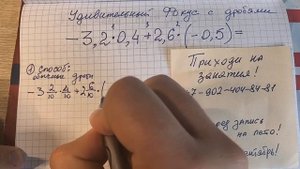 Удивительный Фокус с дробями
1 3 2
-3,2·0,4+2,6·(-0,5)=
① способ:
обычные дроби
-3 2/10 · 4/10 + 2 6/10 · (
Приходи на
занятия!
+7-902-404-84-81
запись
на лето!
сентябрь!